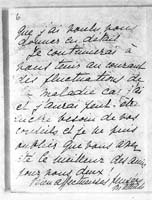 6
que j'ai voulu vous
donner en détail
Je continuerai à
vous tenir au courant
des fluctuations de
maladie car j'ai
et j'aurai peut-être
encore besoin de vos
conseils et je ne puis
oublier que vous avez
été le meilleur des amis
pour nous deux!
Bien affectueuses